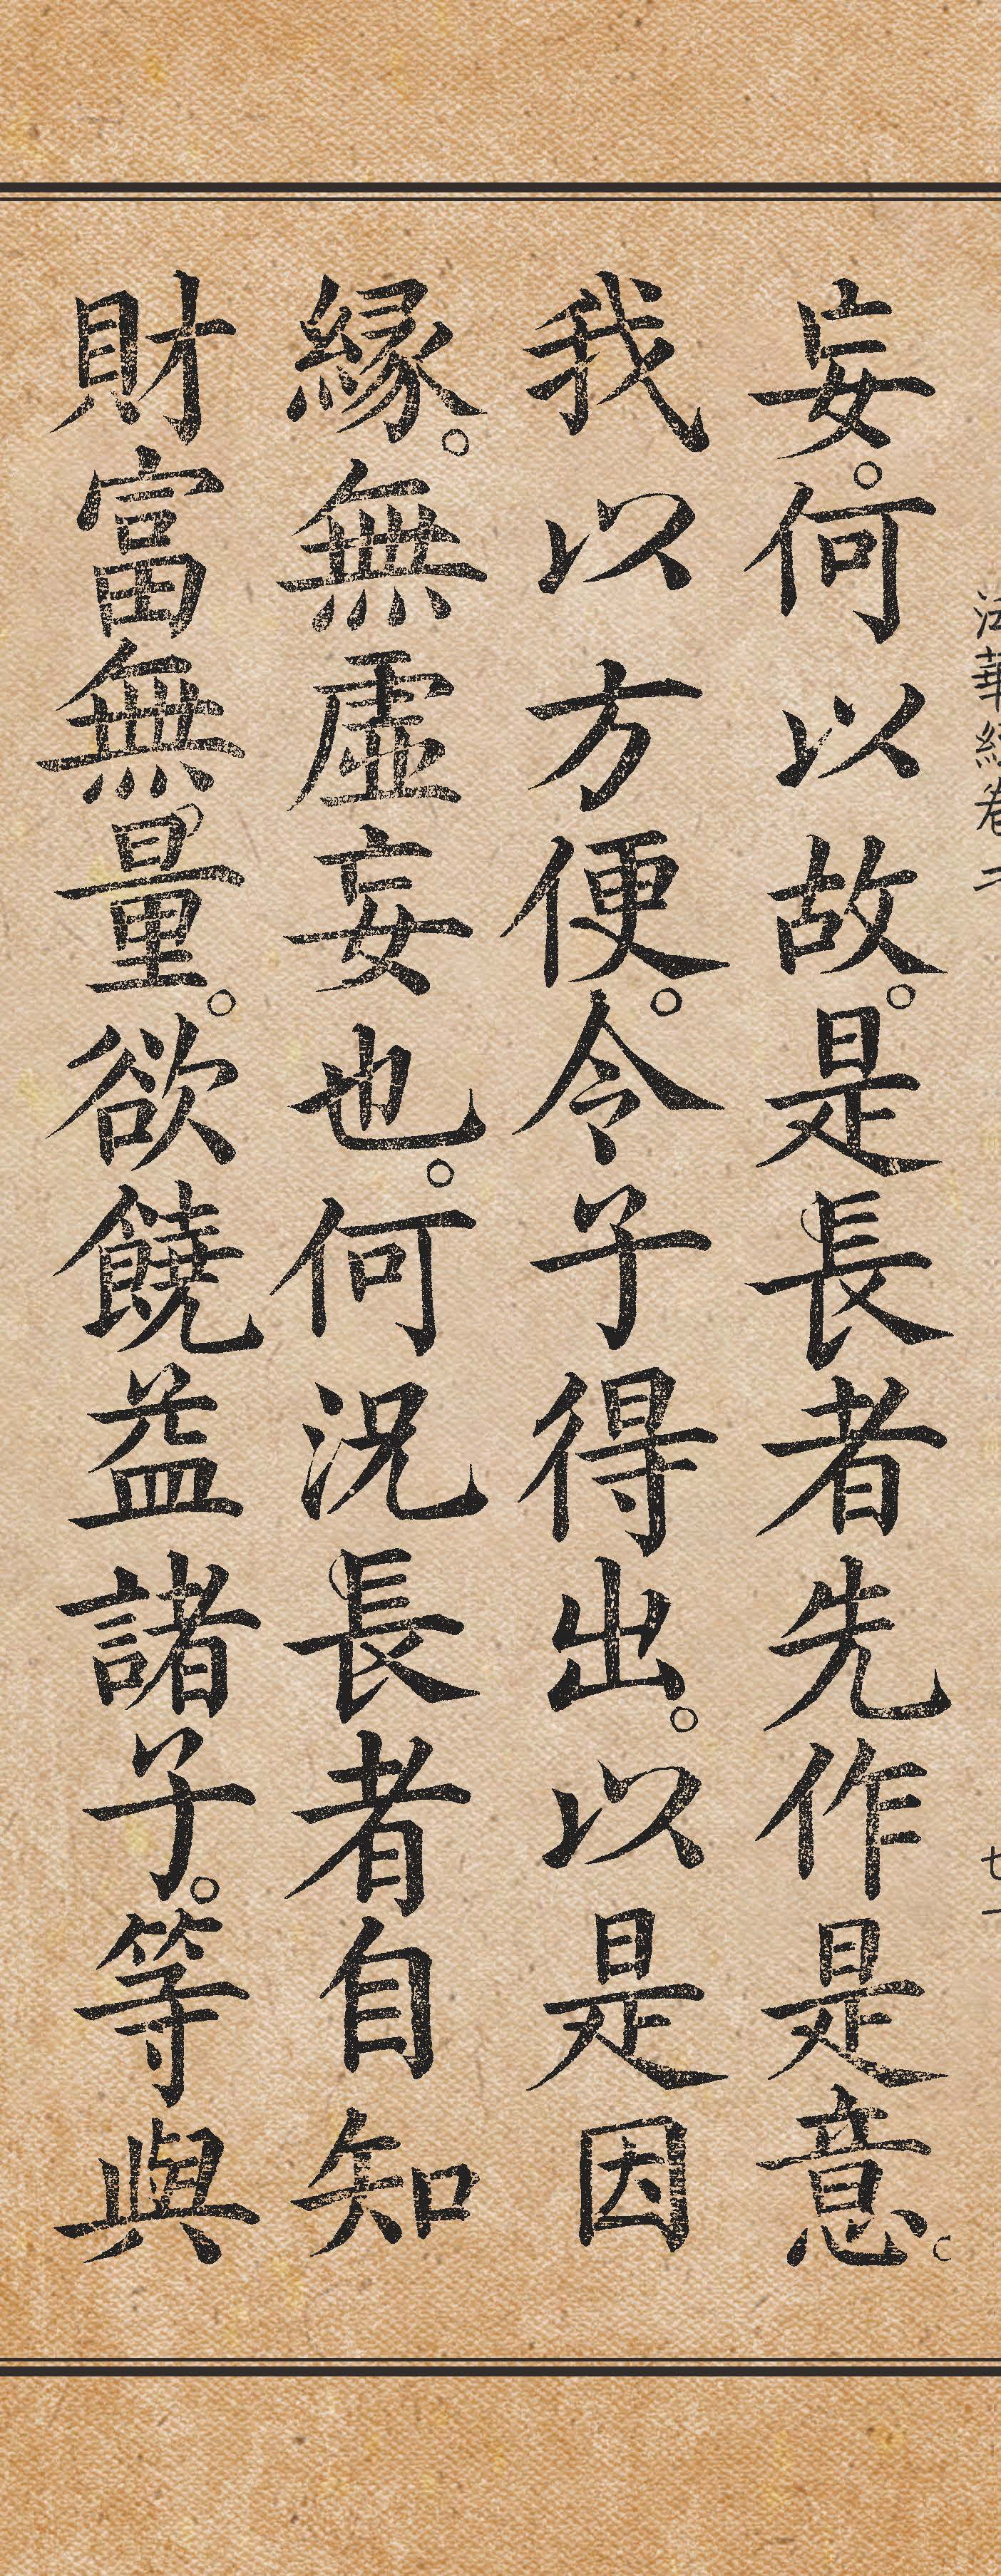 法華經卷二
妄。何以故。是長者先作是意。
我以方便。令子得出。以是因
緣。無虛妄也。何況長者自知
財富無量。欲饒益諸子。等與